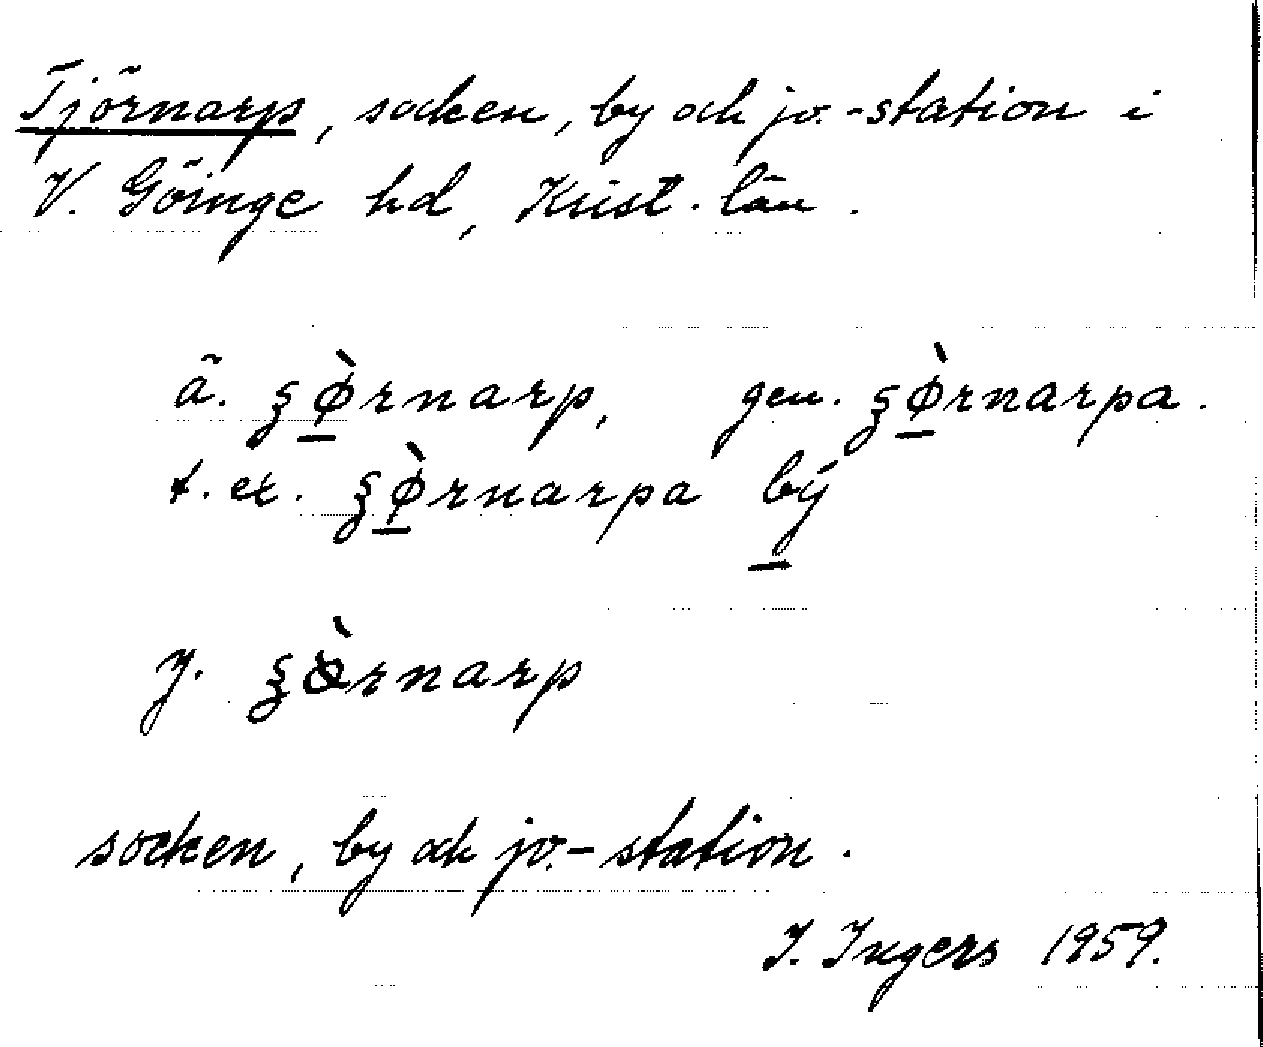 Tjörnarp, socken, by och jv.-station i
V. Göinge hd, Krist. län.
ä. ʂø̱̀rnarp, gen. ʂø̱̀rnarpa.
t. ex. ʂø̱̀rnarpa bý̱
y. ʂ rnarp
socken, by och jv.-station.
I. Ingers 1959.